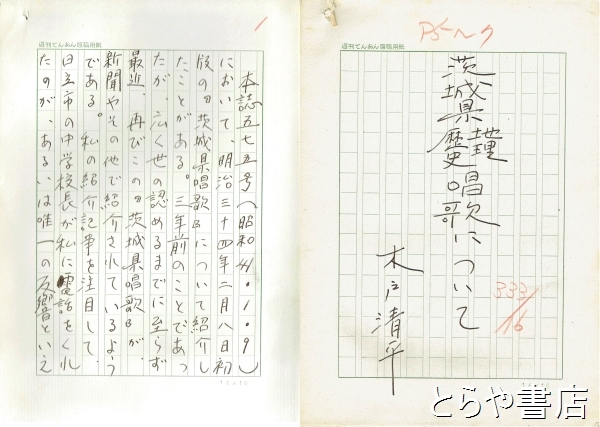 P5〜7
週刊てんおん原稿用紙
茨城県地理歴史唱歌について
木戸清平
333/16
12×16
1
週刊てんおん原稿用紙
本誌五七五号(昭和41・1・9)
において、明治三十四年二月八日初
版の『茨城県唱歌』について紹介し
たことがある。三年前のことであっ
たが、広く世の認めるまでに至らず
最近、再びこの『茨城県唱歌』が、
新聞やその他で紹介されているよう
である。私の紹介記事を注目して、
日立市の中学校長が私に電話をくれ
たのが、あるいは唯一の反響といえ
12×16
とらや書店